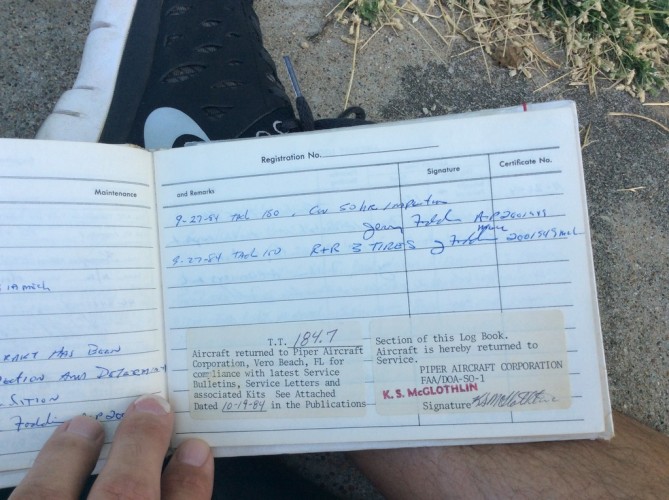 Maintenance
IRAKT HAS BEEN
ECTION AND DETERM
SITION
Registration No.
and Remarks
Signature
Certificate No.
9-27-84 TACH 150. 50 HR Inspection
A+P 2001949
9-27-84 TACH 150 R+R 3 TIRES 2001949
T.T. 184.7
Aircraft returned to Piper Aircraft
Corporation, Vero Beach, FL for
compliance with latest Service
Bulletins, Service Letters and
associated Kits See Attached
Dated 10-19-84 in the Publications
Section of this Log Book.
Aircraft is hereby returned to
Service.
PIPER AIRCRAFT CORPORATION
FAA/DOA-SO-1
K. S. McGLOTHLIN
Signature